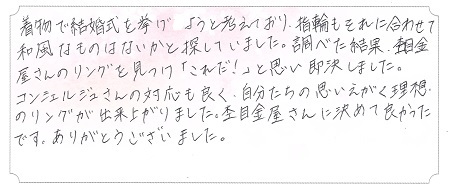 着物で結婚式を挙げようと考えており、指輪もそれに合わせて
和風なものはないかと探していました。調べた結果、杢目金
屋さんのリングを見つけ「これだ!」と思い即決しました。
コンシェルジュさんの対応も良く、自分たちの思いえがく理想
のリングが出来上がりました。杢目金屋さんに決めて良かった
です。ありがとうございました。